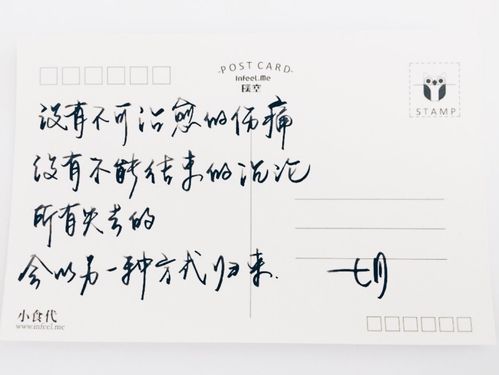 POST CARD
Infeel.Me
璞空
STAMP
没有不可治愈的伤痛
没有不能结束的沉沦
所有失去的
会以另一种方式归来.
七月
小食代
www.infeel.me